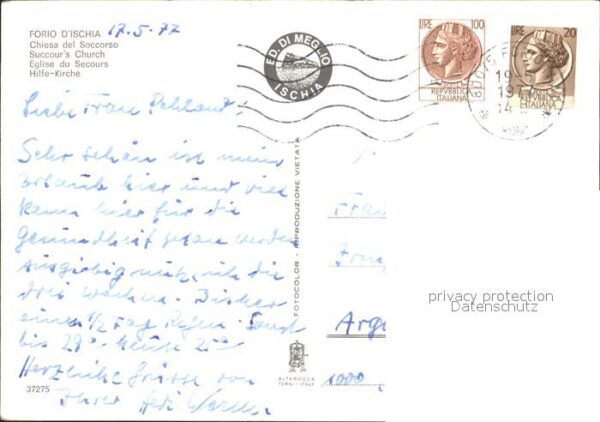 FORIO D'ISCHIA
Chiesa del Soccorso
Succour's Church
Eglise du Secours
Hilfe-Kirche
17.5.77
ED. DI MEGLIO
ISCHIA
LIRE 100
REPVBBLICA
ITALIANA
LIRE 20
REPVBBLICA
ITALIANA
Liebe Frau
Sehr schön ist mein
Urlaub hier und viel
kann hier für die
Gesundheit getan werden
Ausgiebig nutz' ich die
drei Wochen. Bisher
einen 1/2 Tag Regen. Sonst
bis 29° heute 25°
Herzliche Grüsse von
Ihrer Hedi
FOTOCOLOR - RIPRODUZIONE VIETATA
Frau
Arge
1000
ALTEROCCA
TERNI - ITALY
37275
privacy protection
Datenschutz